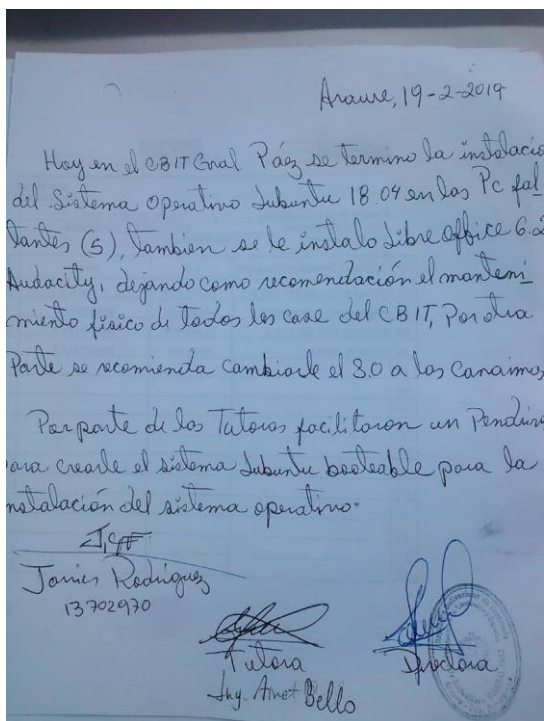 Araure, 19-2-2019
Hoy en el CBIT Gral. Páez se termino la instalacio
del Sistema Operativo Lubuntu 18.04 en las Pc fal-
tantes (5), tambien se le instalo Libre Office 6.2
Audacity, dejando como recomendación el manteni-
miento fisico de todos los case del CBIT, Por otra
Parte se recomienda cambiarle el S.O a las Canaimas
Por parte de las Tutoras facilitaron un Pendriv
para crearle el sistema Lubuntu booteable para la
nstalación del sistema operativo.
Rodriguez
13702970
Tutora
Directora
Ing. Bello